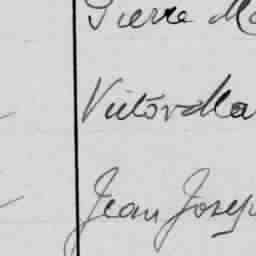 Pierre Ma
Victor Ma
Jean Josep